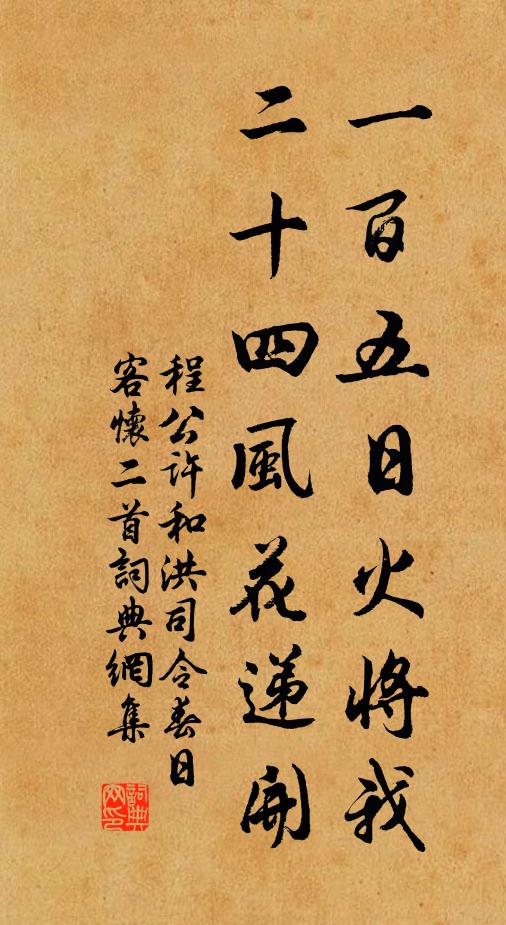 一百五日火將我
二十四風花遞開
程公許和洪司令春日
客懷二首詞典網集
詞典
网印